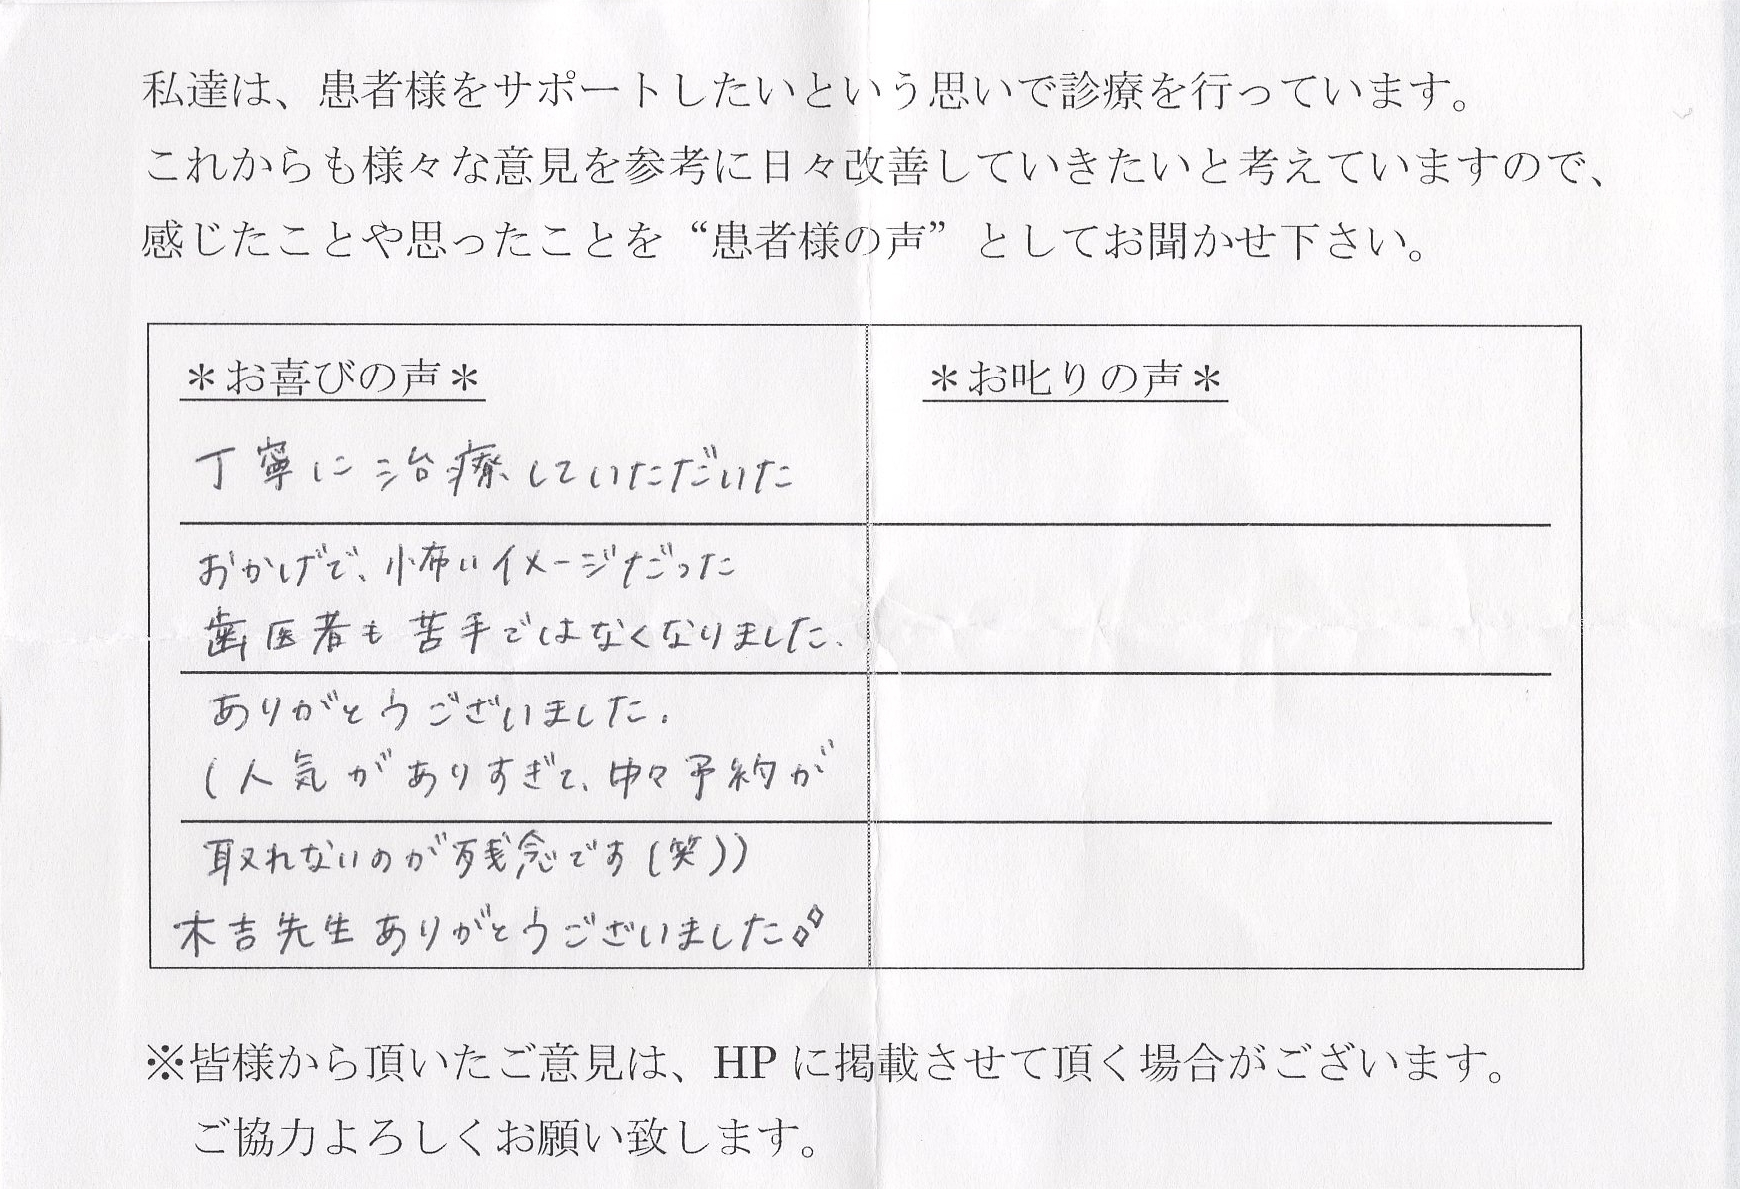 私達は、患者様をサポートしたいという思いで診療を行っています。
これからも様々な意見を参考に日々改善していきたいと考えていますので、
感じたことや思ったことを“患者様の声”としてお聞かせ下さい。
＊お喜びの声＊
丁寧に治療していただいた
おかげで、小布いイメージだった
歯医者も苦手ではなくなりました.
ありがとうございました.
(人気がありすぎて、中々予約が
取れないのが残念です(笑))
木吉先生ありがとうございました
＊お叱りの声＊
※皆様から頂いたご意見は、HPに掲載させて頂く場合がございます。
ご協力よろしくお願い致します。